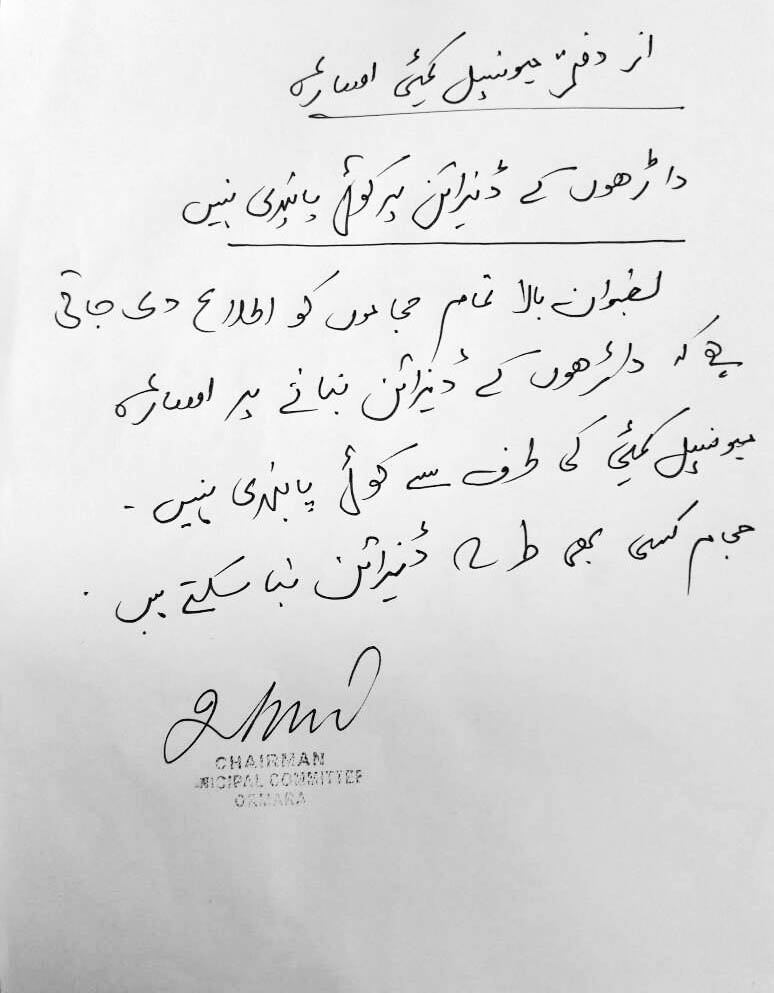 از دفتر میونسپل کمیٹی اورماڑہ
داڑھوں کے ڈیزائن پر کوئی پابندی نہیں
بعنوان بالا تمام حجاموں کو اطلاع دی جاتی
ہے کہ داڑھوں کے ڈیزائن بنانے پر اورماڑہ
میونسپل کمیٹی کی طرف سے کوئی پابندی نہیں -
حجام کسی بھی طرح ڈیزائن بنا سکتے ہیں .
CHAIRMAN
MUNICIPAL COMMITTEE
ORMARA